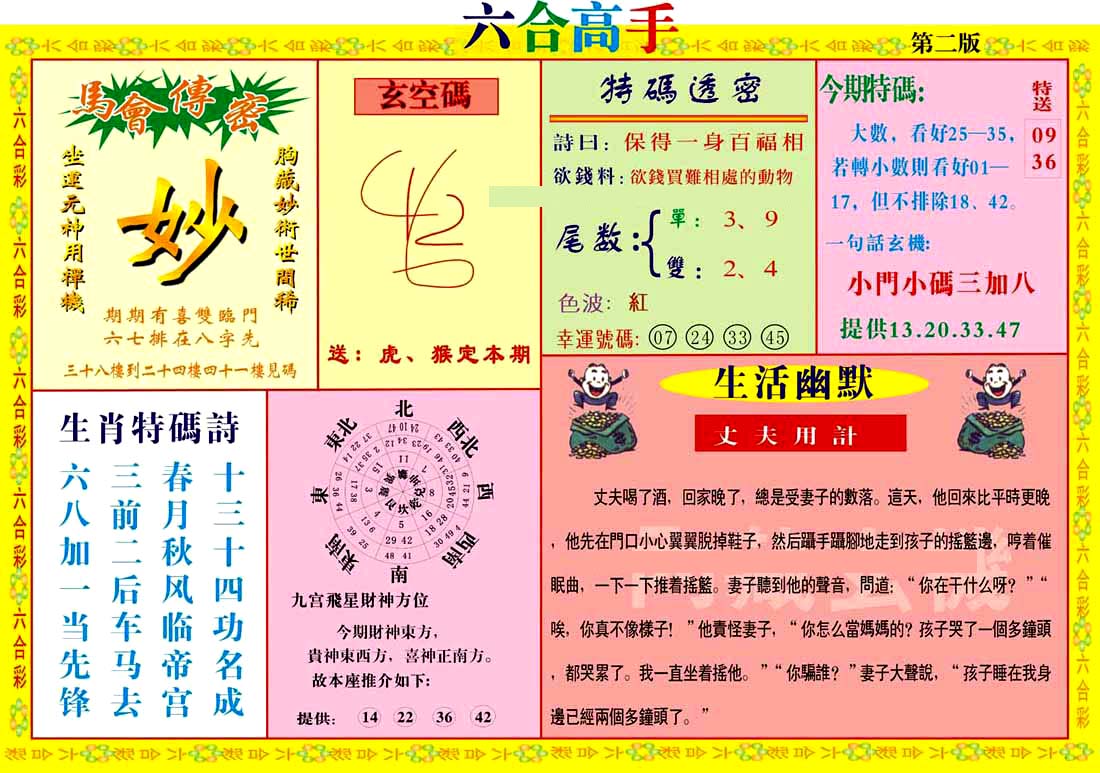 六合高手
第二版
馬會傳密
坐運元神用禪機
妙
胸藏妙術世間稀
期期有喜雙臨門
六七排在八字先
三十八樓到二十四樓四十一樓見碼
玄空碼
送：虎、猴定本期
特碼透密
詩曰：保得一身百福相
欲錢料：欲錢買難相處的動物
尾数：
單：3、9
雙：2、4
色波：紅
幸運號碼：07 24 33 45
今期特碼:
特送
09
36
大數，看好25—35，
若轉小數則看好01—
17，但不排除18、42。
一句話玄機:
小門小碼三加八
提供13.20.33.47
生肖特碼詩
十三十四功名成
春月秋风临帝宫
三前二后车马去
六八加一当先锋
北
東北
西北
東
西
東南
西南
南
九宫飛星財神方位
今期財神東方，
貴神東西方，喜神正南方。
故本座推介如下:
提供: 14 22 36 42
生活幽默
丈夫用計
丈夫喝了酒，回家晚了，總是受妻子的數落。這天，他回來比平時更晚
，他先在門口小心翼翼脱掉鞋子，然后躡手躡腳地走到孩子的搖籃邊，哼着催
眠曲，一下一下推着搖籃。妻子聽到他的聲音，問道：“你在干什么呀？”“
唉，你真不像樣子！”他責怪妻子，“你怎么當媽媽的？孩子哭了一個多鐘頭
，都哭累了。我一直坐着搖他。”“你騙誰？”妻子大聲說，“孩子睡在我身
邊已經兩個多鐘頭了。”
六合彩